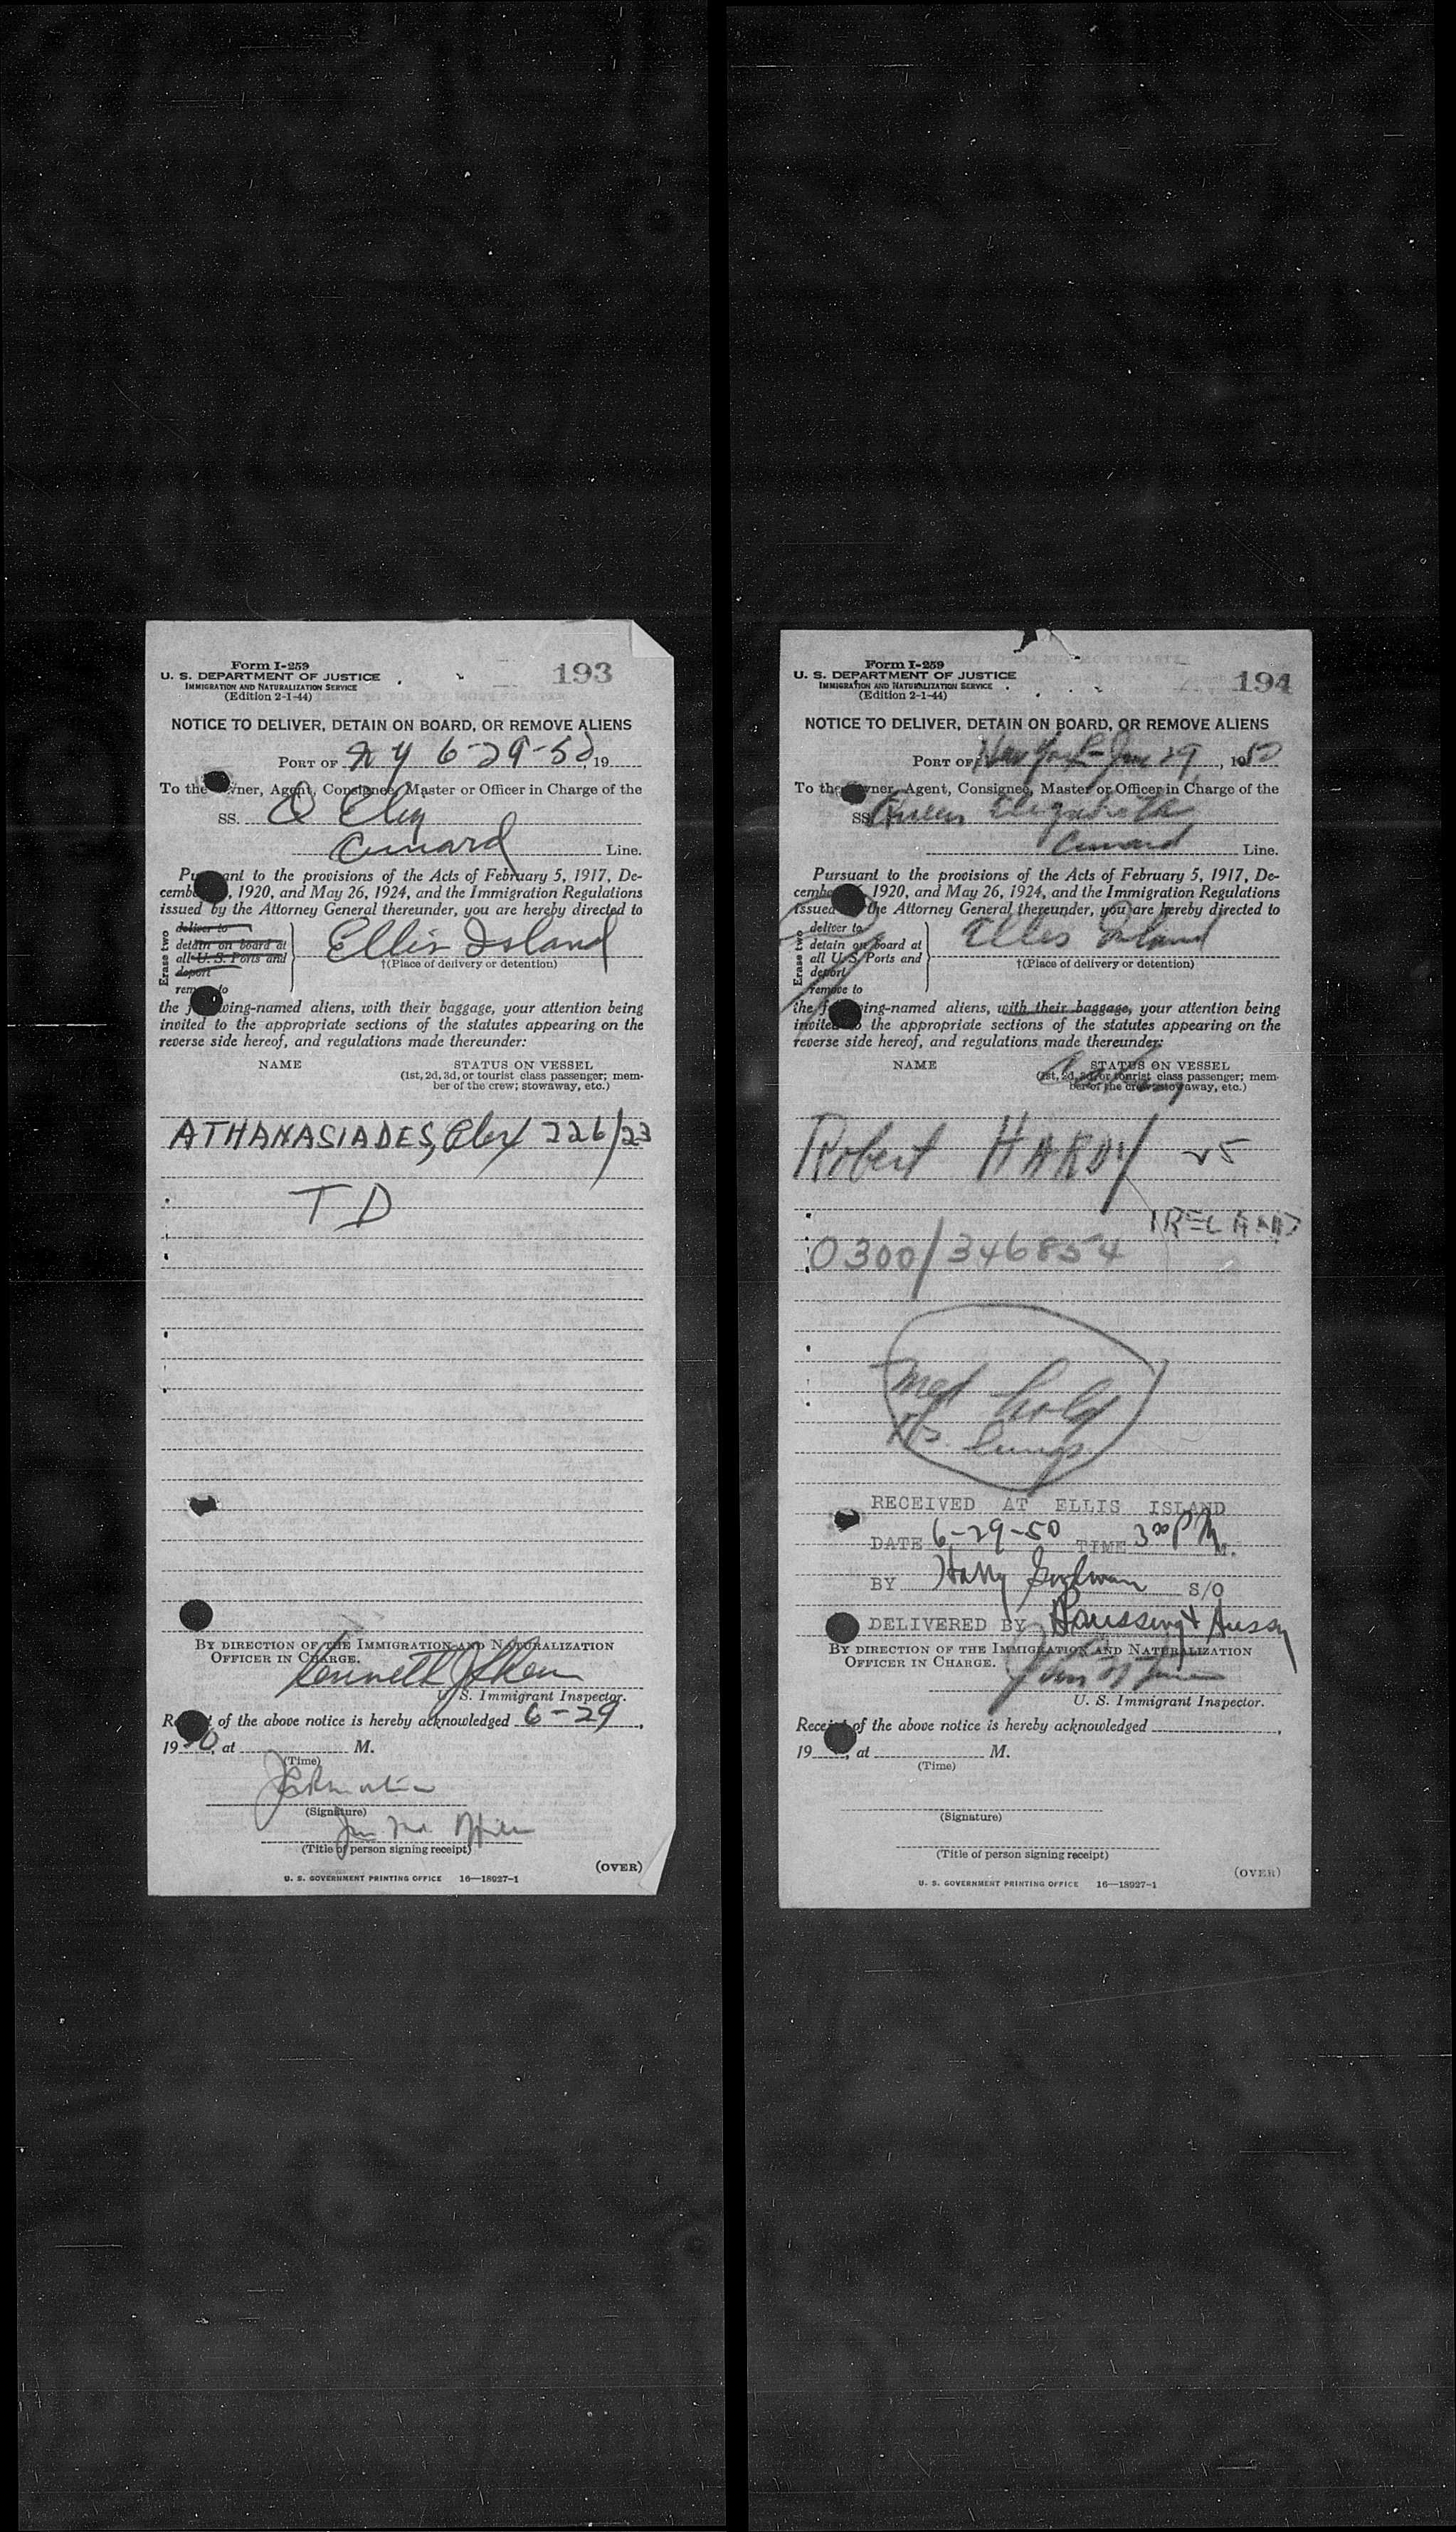 Form I-259
U. S. DEPARTMENT OF JUSTICE
IMMIGRATION AND NATURALIZATION SERVICE
(Edition 2-1-44)
193
NOTICE TO DELIVER, DETAIN ON BOARD, OR REMOVE ALIENS
PORT OF N Y 6-29-50, 19
To the Owner, Agent, Consignee, Master or Officer in Charge of the
SS. Q Eliz
Cunard Line.
Pursuant to the provisions of the Acts of February 5, 1917, De-
cember, 1920, and May 26, 1924, and the Immigration Regulations
issued by the Attorney General thereunder, you are hereby directed to
Erase two
deliver to
detain on board at
all U. S. Ports and
deport
remove to
Ellis Island
†(Place of delivery or detention)
the following-named aliens, with their baggage, your attention being
invited to the appropriate sections of the statutes appearing on the
reverse side hereof, and regulations made thereunder:
NAME STATUS ON VESSEL
(1st, 2d, 3d, or tourist class passenger; mem-
ber of the crew; stowaway, etc.)
ATHANASIADES, Alex 226/23
T D
BY DIRECTION OF THE IMMIGRATION AND NATURALIZATION
OFFICER IN CHARGE.
Kenneth J
U. S. Immigrant Inspector.
Receipt of the above notice is hereby acknowledged 6-29,
1950, at M.
(Time)
(Signature)
(Title of person signing receipt)
(OVER)
U. S. GOVERNMENT PRINTING OFFICE 16—18927-1
Form I-259
U. S. DEPARTMENT OF JUSTICE
IMMIGRATION AND NATURALIZATION SERVICE
(Edition 2-1-44)
194
NOTICE TO DELIVER, DETAIN ON BOARD, OR REMOVE ALIENS
PORT OF New York Jun 29, 1950
To the Owner, Agent, Consignee, Master or Officer in Charge of the
SS Queen Elizabeth
Cunard Line.
Pursuant to the provisions of the Acts of February 5, 1917, De-
cember, 1920, and May 26, 1924, and the Immigration Regulations
issued by the Attorney General thereunder, you are hereby directed to
Erase two
deliver to
detain on board at
all U. S. Ports and
deport
remove to
Ellis Island
†(Place of delivery or detention)
the following-named aliens, with their baggage, your attention being
invited to the appropriate sections of the statutes appearing on the
reverse side hereof, and regulations made thereunder:
NAME STATUS ON VESSEL
(1st, 2d, 3d, or tourist class passenger; mem-
ber of the crew; stowaway, etc.)
Robert HARDY 25
IRELAND
0300/346854
Med hold
lungs
RECEIVED AT ELLIS ISLAND
DATE 6-29-50 TIME 3 00 P M.
BY Harry Goodman S/O
DELIVERED BY
BY DIRECTION OF THE IMMIGRATION AND NATURALIZATION
OFFICER IN CHARGE.
U. S. Immigrant Inspector.
Receipt of the above notice is hereby acknowledged ,
19, at M.
(Time)
(Signature)
(Title of person signing receipt)
(OVER)
U. S. GOVERNMENT PRINTING OFFICE 16—18927-1